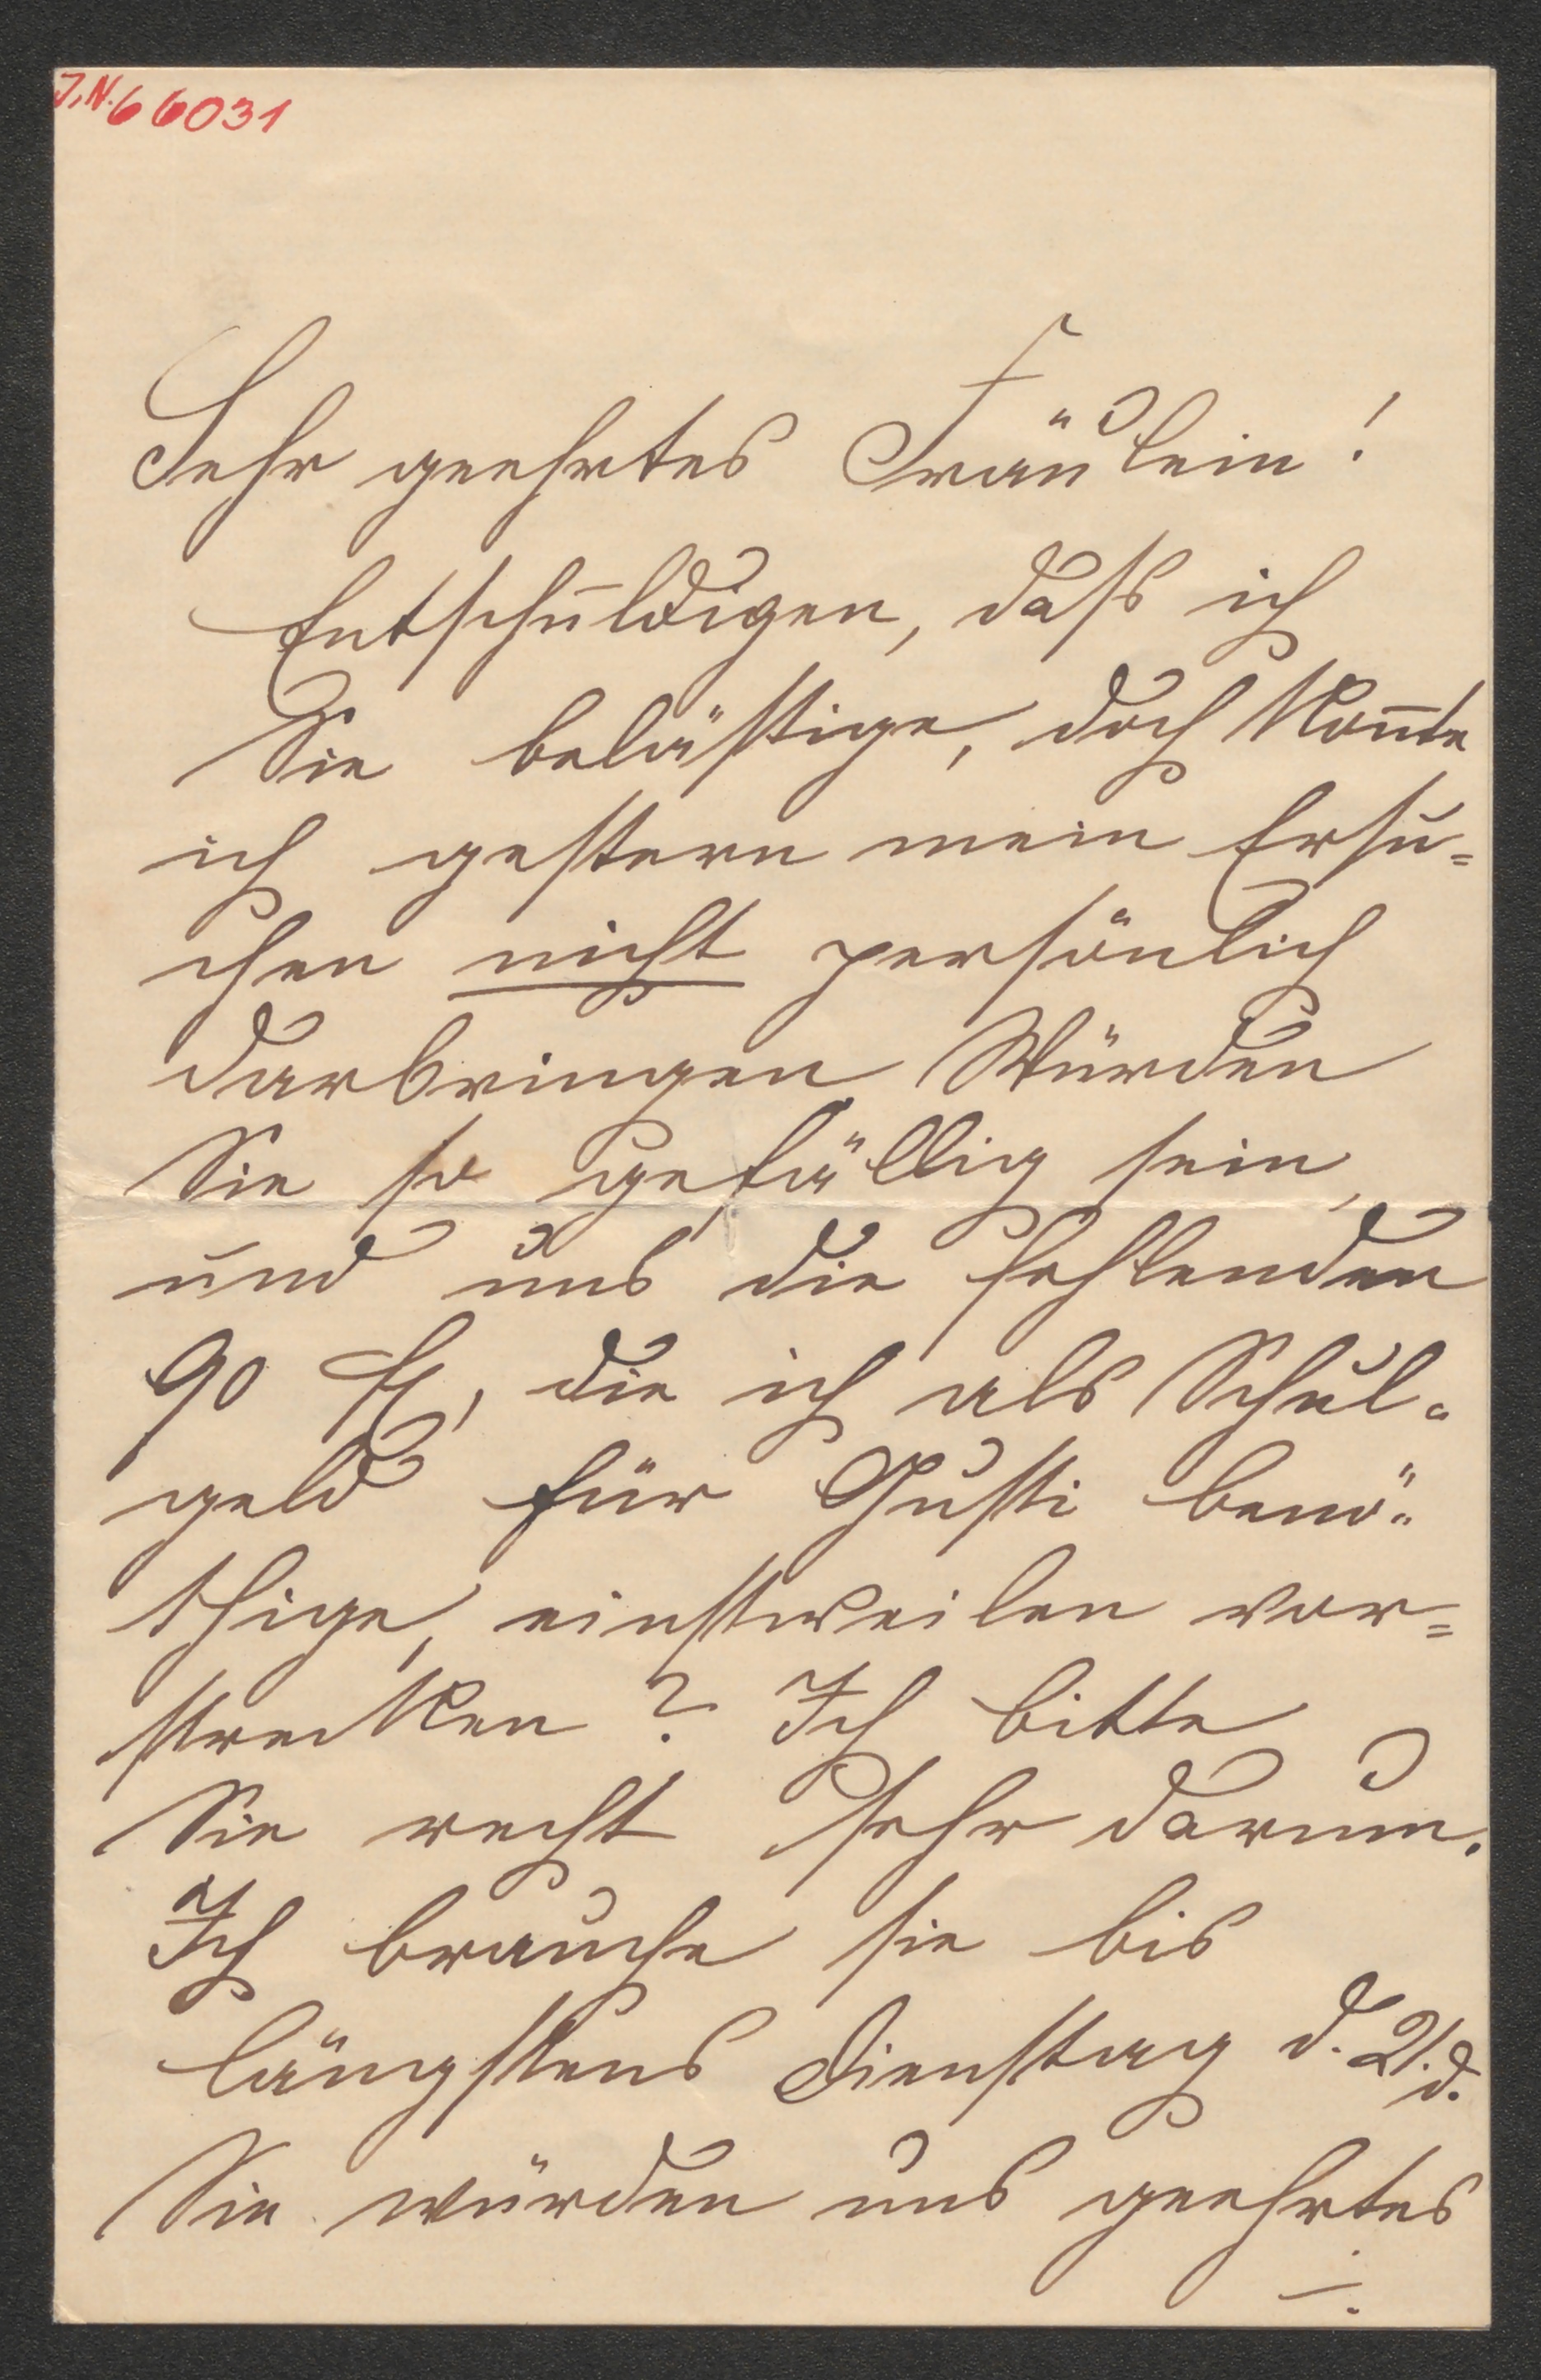 J.N. 66031
Sehr geehrtes Fräulein!
Entschuldigen, daß ich
Sie belästige, doch kon̄te
ich gestern mein Ersu=
chen nicht persönlich
darbringen Würden
Sie so gefällig sein,
und uns die fehlenden
90 fl, die ich als Schul=
geld für Gusti benö=
thige, einstweilen vor=
strecken? Ich bitte
Sie recht sehr darum.
Ich brauche sie bis
längstens Dienstag d. 21. d.
Sie würden uns geehrtes
./.